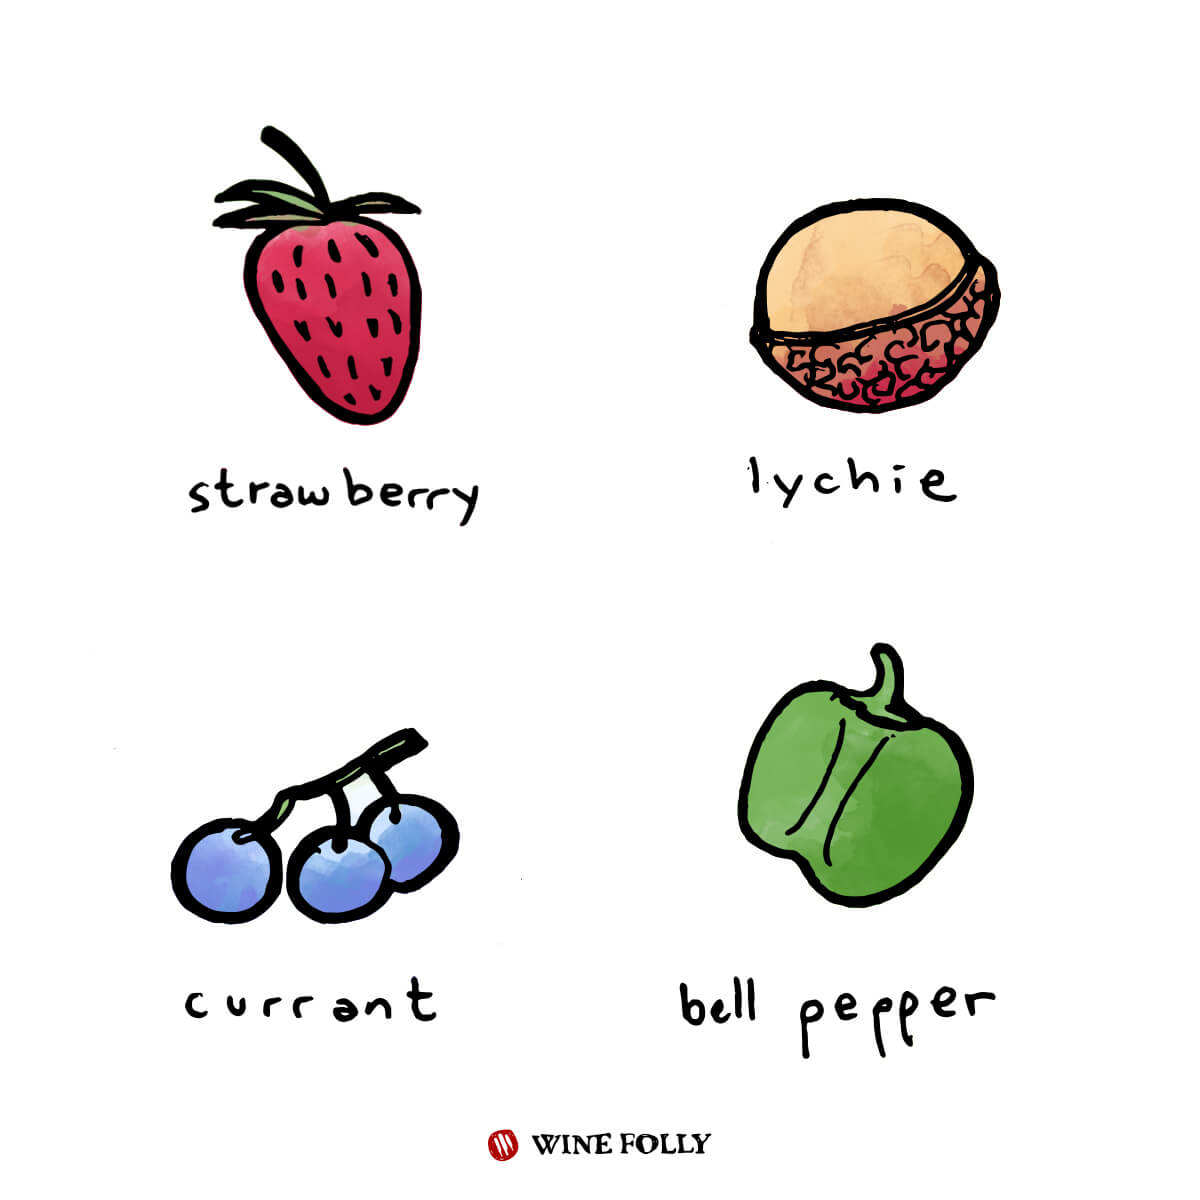 strawberry
lychie
currant
bell pepper
WINE FOLLY